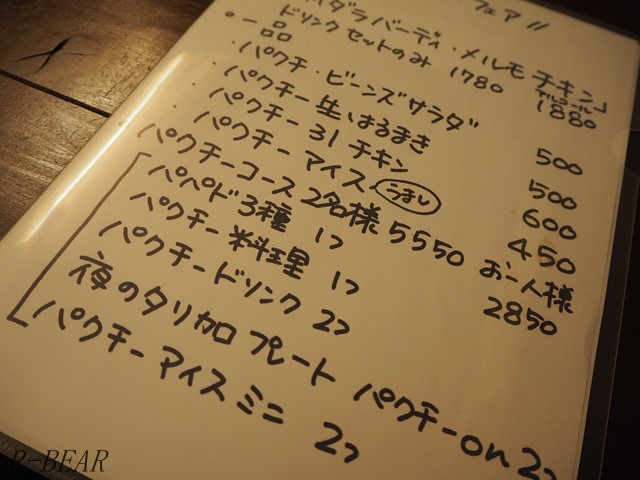 フェア!!
ダラバーディ・メルモチキン」
ドリンクセットのみ 1780 1880
・一品
・パクチ・ビーンズサラダ 500
・パクチー生はるまき 500
・パクチー31チキン 600
・パクチーアイス うまい 450
パクチーコース2名様 5550 お一人様 2850
パペド3種 1つ
パクチー料理 1つ
パクチードリンク 2つ
夜のタリカロプレート パクチーon 2つ
パクチーアイスミニ 2つ
P-BEAR